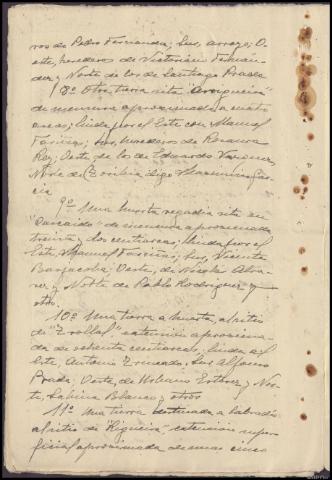 ros de Pedro Fernandez; Sur, arroyo; O-
este, herederos de Victoriano Fernan-
dez y Norte de los de Santiago Prada
8º Otra tierra sita "Arrigueira"
de mensura aproximada a cuatro
areas; linda por el Este con Manuel
Fariñas; Sur, herederos de Rosaura
Rey; Oeste de los de Eduardo Vazquez
Norte de Emilia digo Gar-
cia
9º Una huerta regadia sita en
de mensura aproximada
treinta y dos centiareas; linda por el
Este, Manuel Fariñas; Sur, Vicente
Barjacoba; Oeste, de Nicolas Alva-
rez y Norte de Pablo Rodriguez y
otros
10º Una tierra a huerta al sitio
de extension aproxima-
da de ochenta centiareas; linda al
Este, Antonio Sur Alfonso
Prada; Oeste, de Urbano Estevez y Nor-
te, Sabina Blanco y otros
11º Una tierra destinada a labradio
al sitio de "Rigueira" extension super-
ficial aproximada de unas cinco